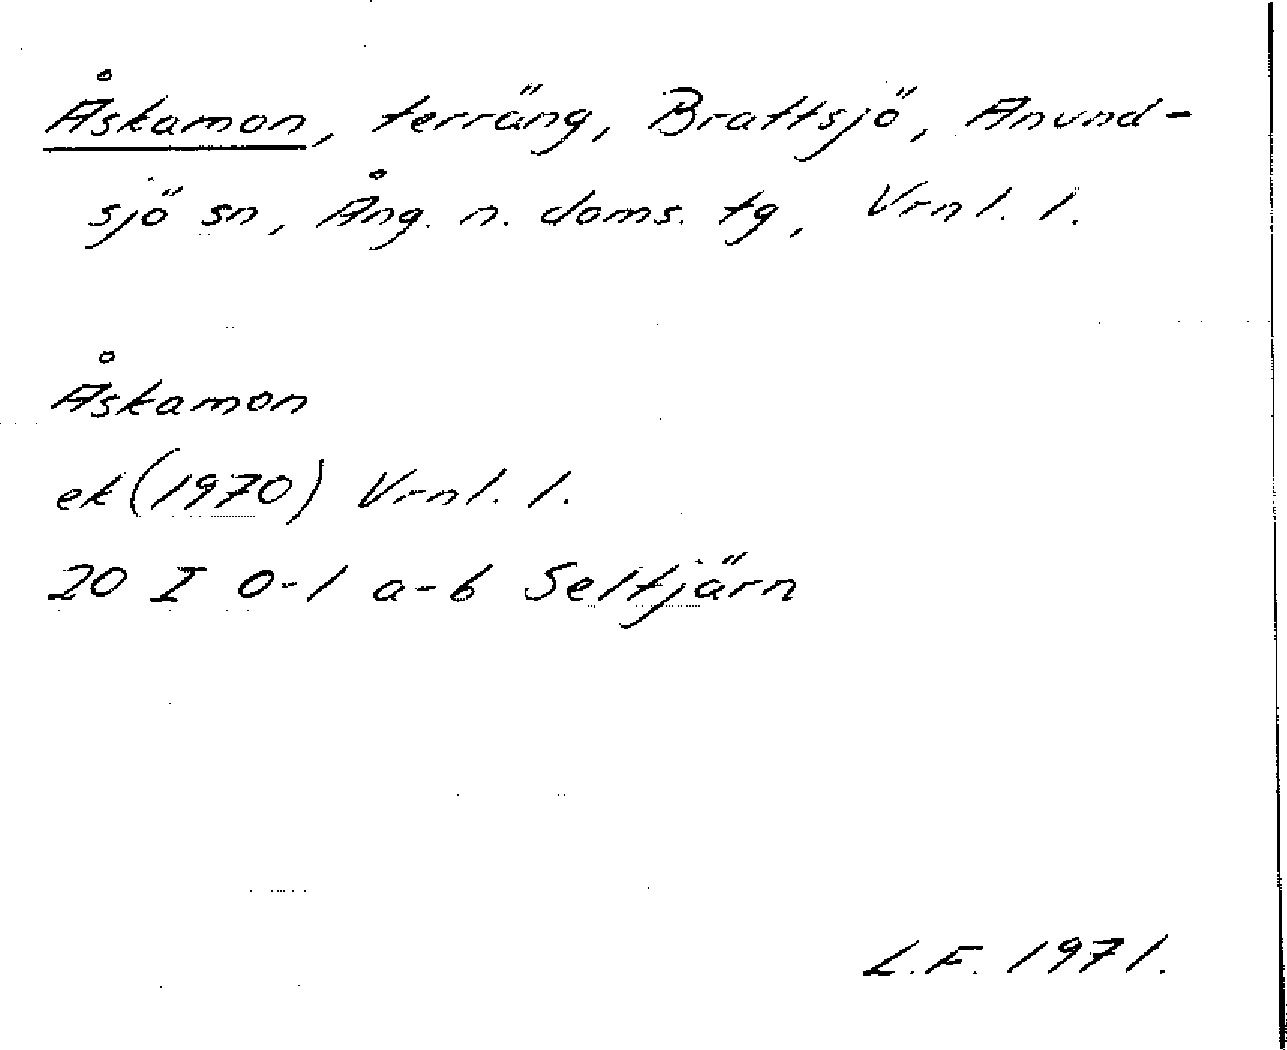 Åskamon, terräng, Brattsjö, Anund-
sjö sn, Ång. n. doms. tg, Vrnl. l.
Åskamon
ek (1970) Vrnl. l.
20 I 0-1 a-b Seltjärn
L.F. 1971.